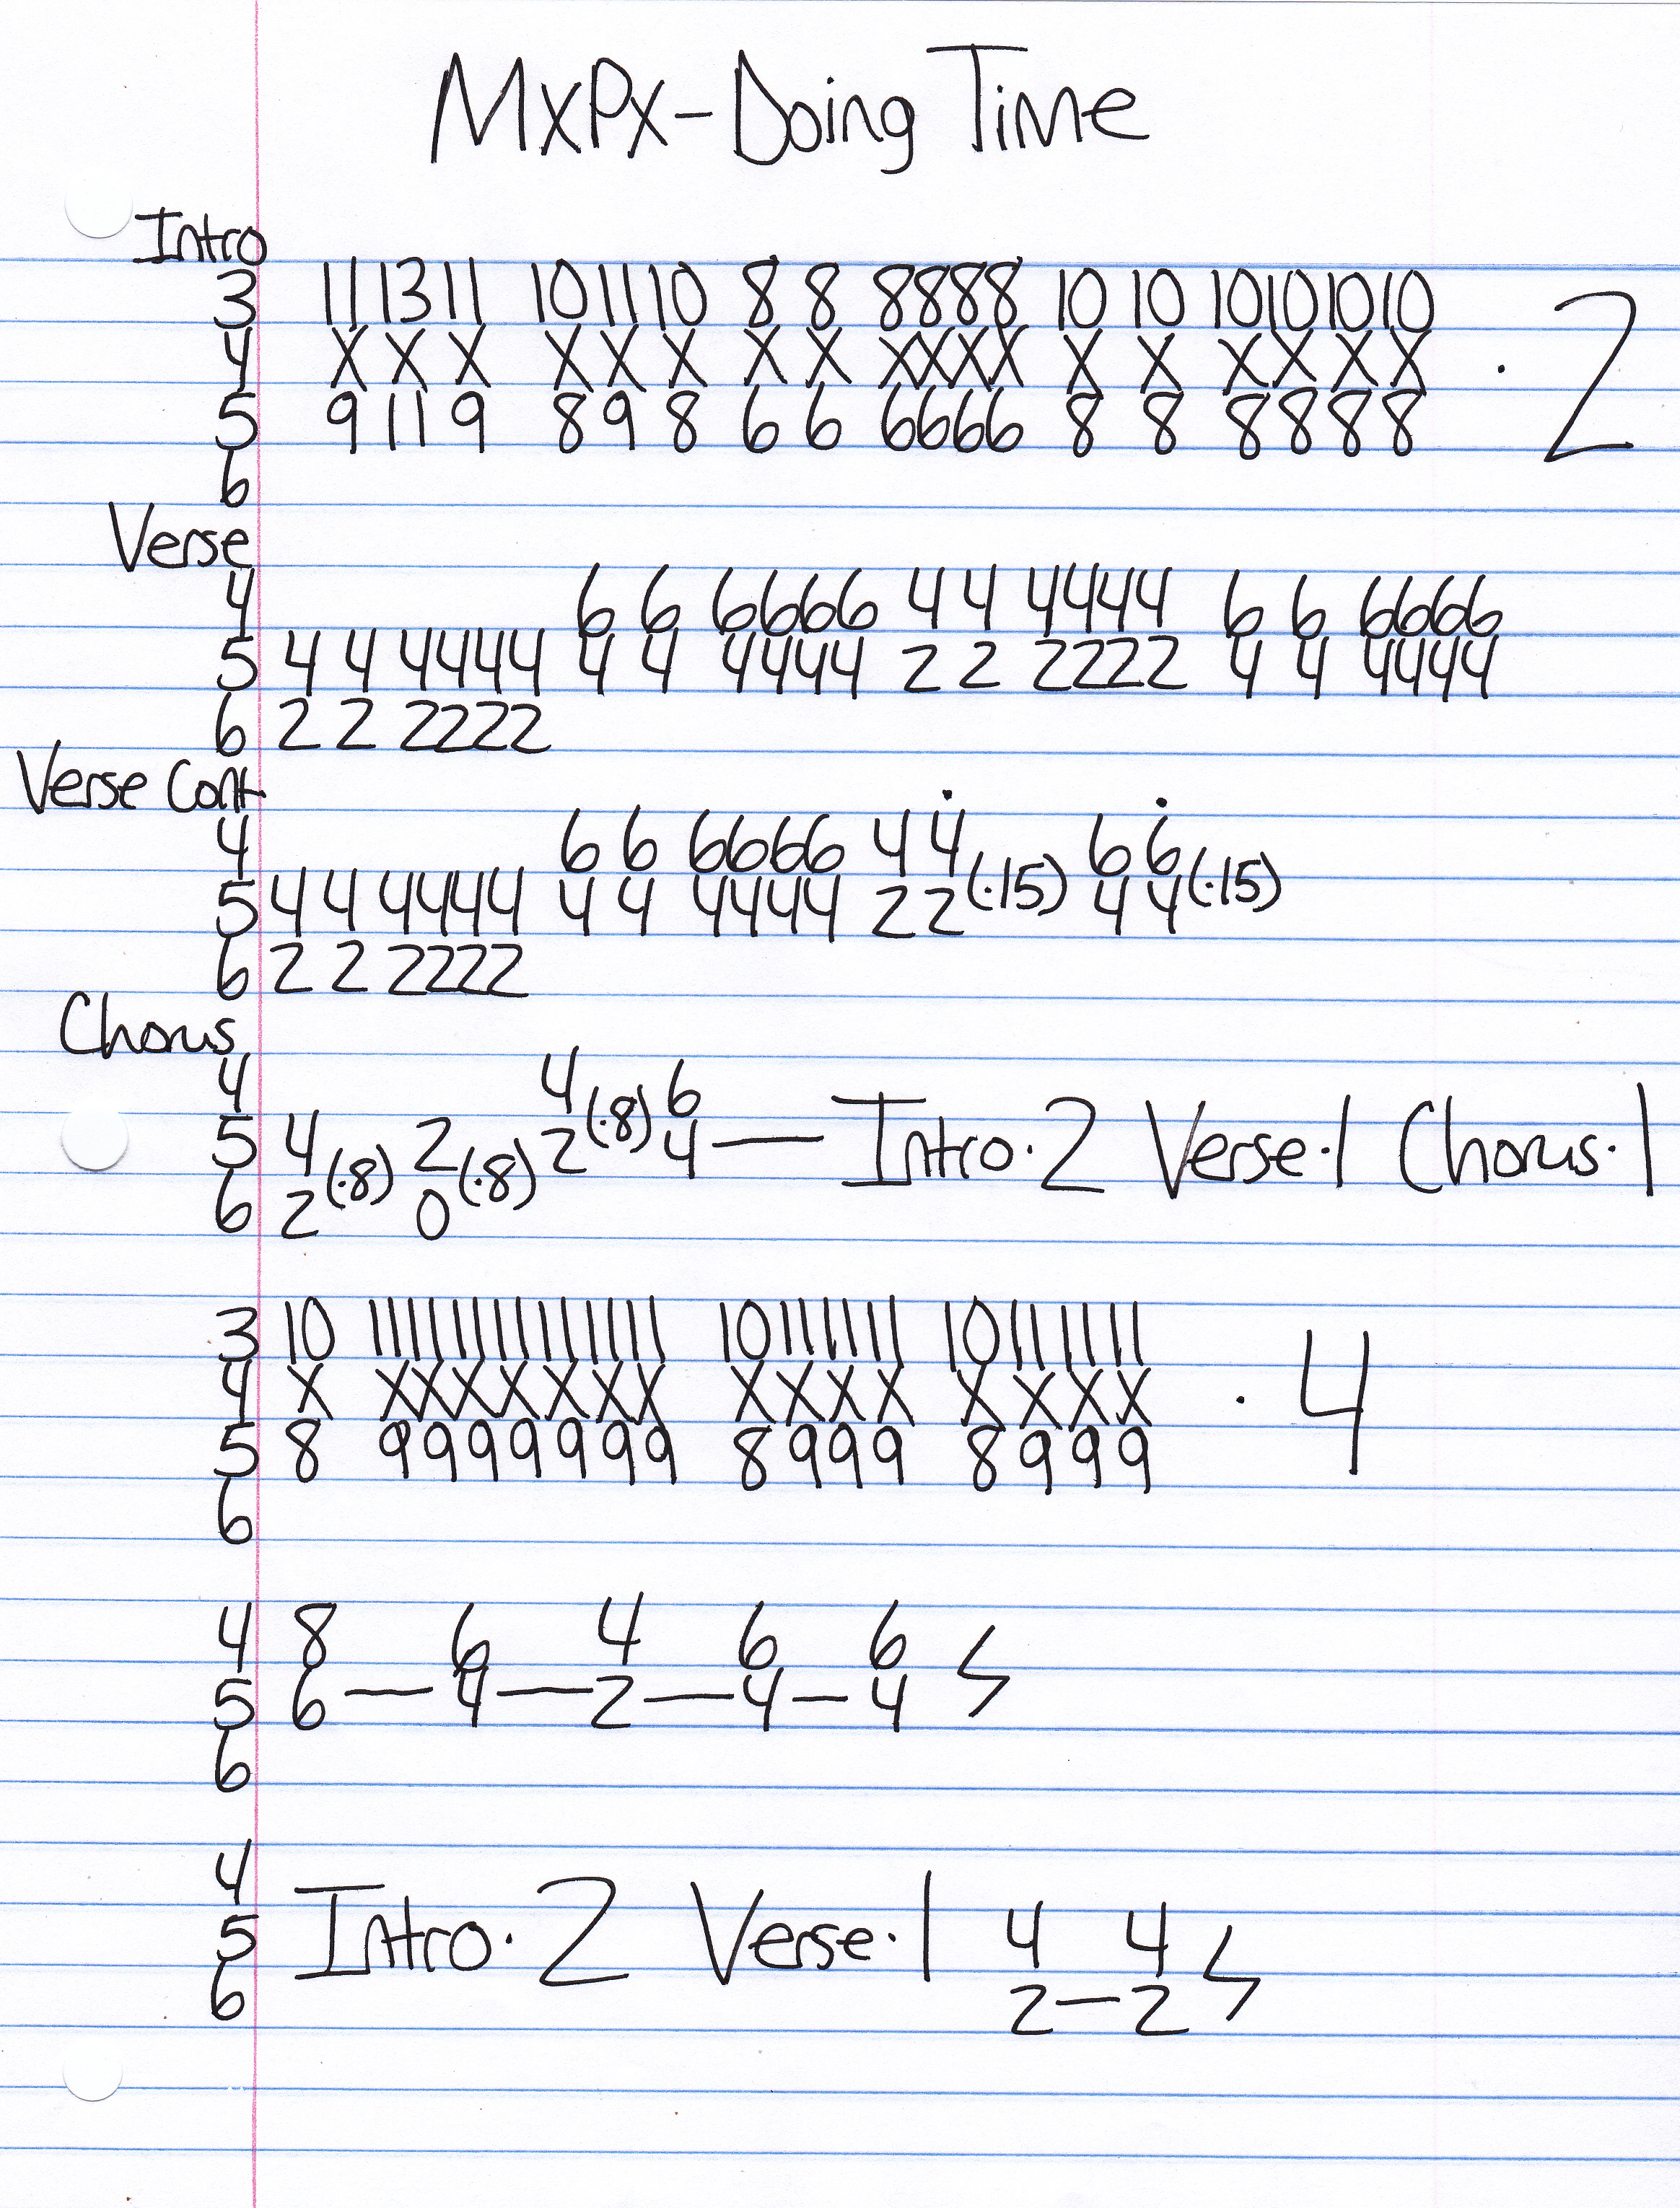 MxPx - Doing Time
Intro
3 11 13 11 10 11 10 8 8 8888 10 10 10101010
4 X X X X X X X X XXXX X X X X X X · 2
5 9 11 9 8 9 8 6 6 6666 8 8 8888
6
Verse
4 6 6 6666 4 4 4444 6 6 6666
5 4 4 4444 4 4 4444 2 2 2222 4 4 4444
6 2 2 2222
Verse Cont
4 6 6 6666 4 4 6 6
5 4 4 4444 4 4 4444 2 2 (·15) 4 4 (·15)
6 2 2 2222
Chorus
4 4 6
5 4 (·8) 2 (·8) 2 (·8) 4 — Intro · 2 Verse · 1 Chorus · 1
6 2 0
3 10 11111111111111 10111111 10111111
4 X XXXXXXX XXXX XXXX · 4
5 8 9999999 8999 8999
6
4 8 6 4 6 6
5 6 — 4 — 2 — 4 — 4
6
4
5 Intro · 2 Verse · 1 4 4
6 2 — 2